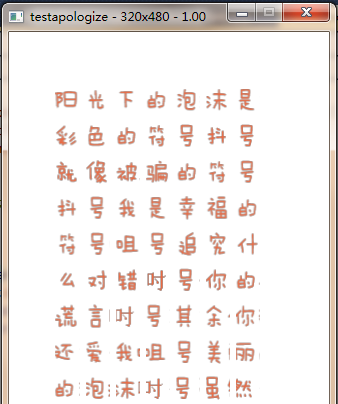 testapologize - 320x480 - 1.00
阳光下的泡沫是
彩色的符号抖号
就像被骗的符号
抖号我是幸福的
符号咀号追究什
么对错吋号你的
谎言吋号其余你
还爱我咀号美丽
的泡沫吋号虽然